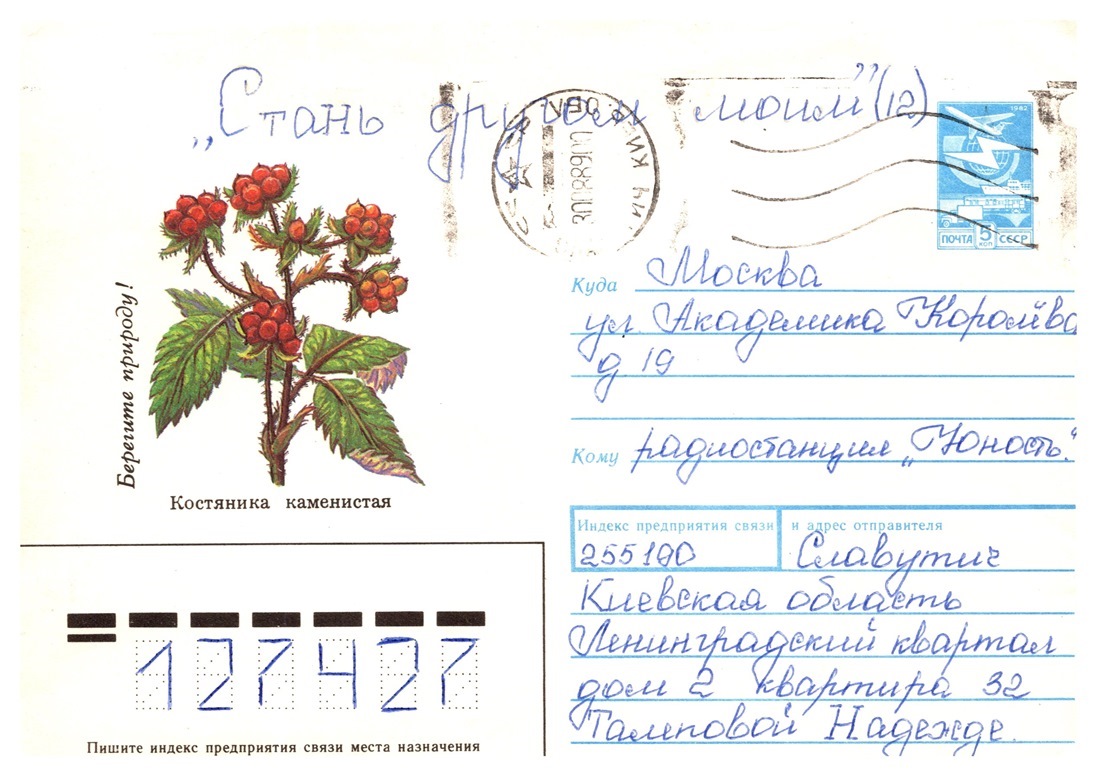 „Стань другом моим” (12)
1982
ПОЧТА 5 КОП СССР
Берегите природу!
Костяника каменистая
Куда Москва
ул. Академика Королёва
д 19
Кому радиостанция „Юность“
Индекс предприятия связи и адрес отправителя
255190 Славутич
Киевская область
Ленинградский квартал
дом 2 квартира 32
Талеповой Надежде.
127427
Пишите индекс предприятия связи места назначения